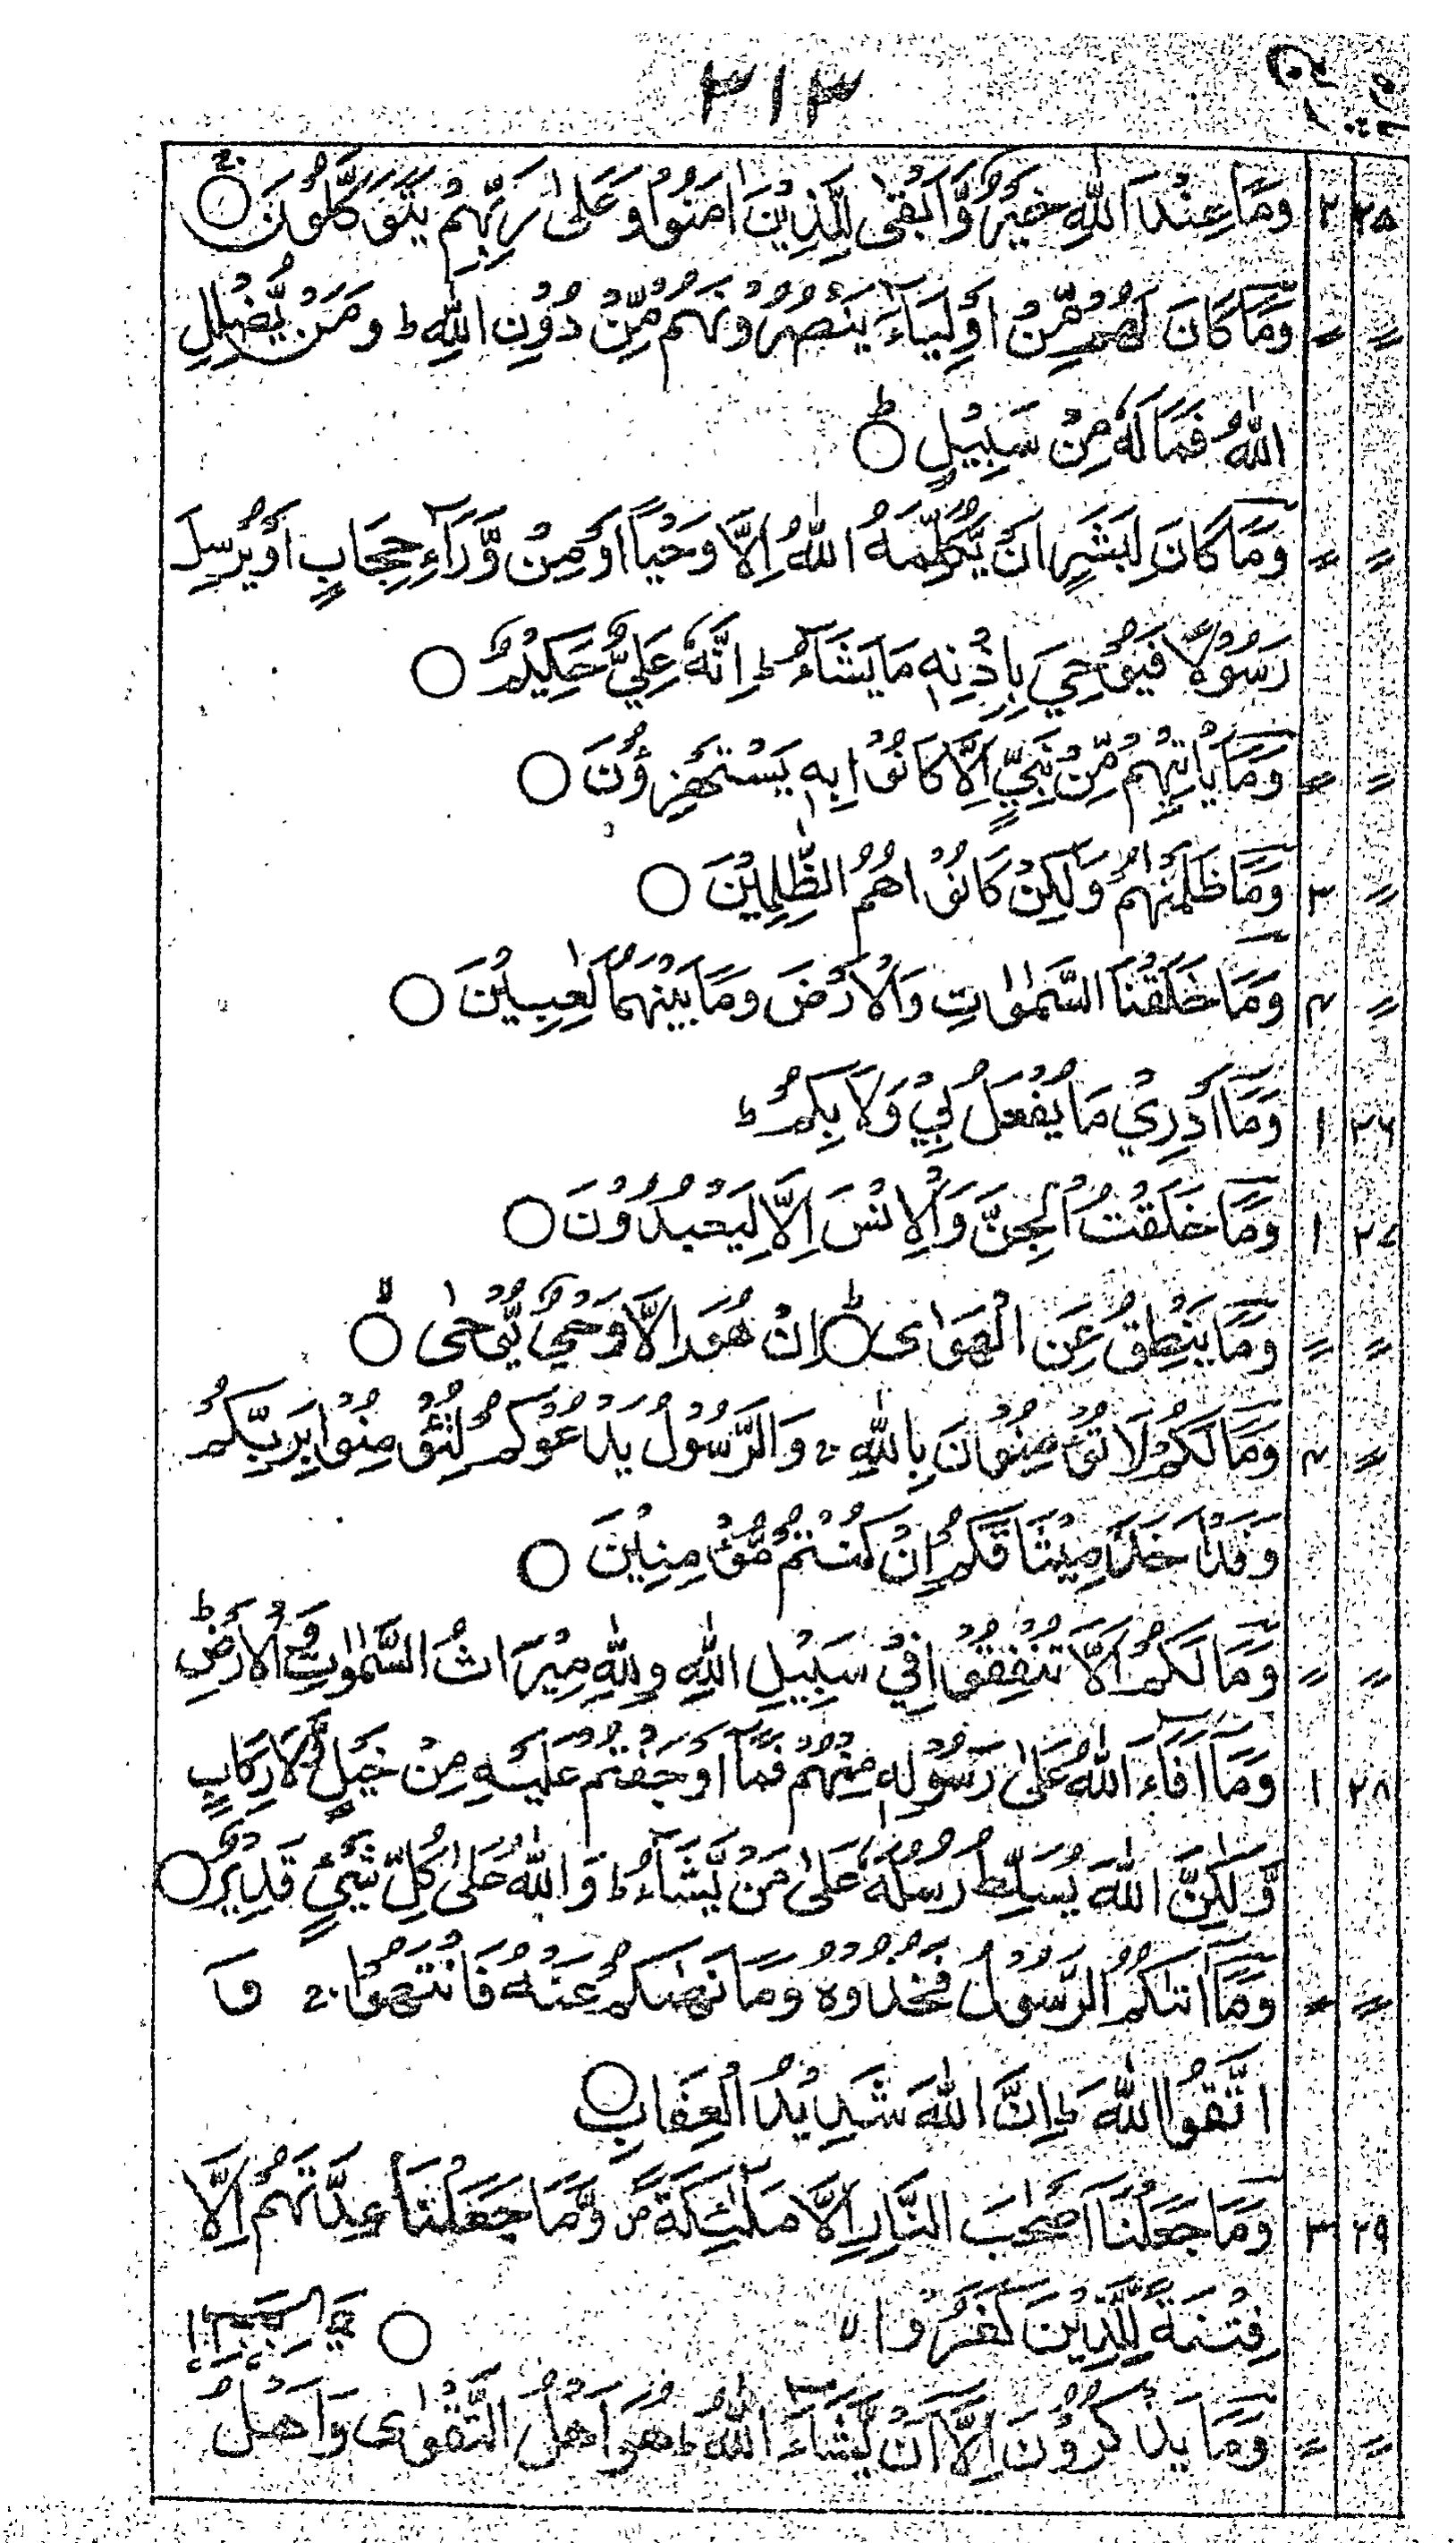 ۳۱۳
پارہ
۲۵ ۲ وَمَا عِنْدَ اللّٰهِ خَيْرٌ وَّاَبْقٰى لِلَّذِيْنَ اٰمَنُوْا وَعَلٰى رَبِّهِمْ يَتَوَكَّلُوْنَ ○
〃 〃 وَمَا كَانَ لَهُمْ مِّنْ اَوْلِيَآءَ يَنْصُرُوْنَهُمْ مِّنْ دُوْنِ اللّٰهِ ط وَمَنْ يُّضْلِلِ
اللّٰهُ فَمَا لَهٗ مِنْ سَبِيْلٍ ○ ط
〃 〃 وَمَا كَانَ لِبَشَرٍ اَنْ يُّكَلِّمَهُ اللّٰهُ اِلَّا وَحْيًا اَوْ مِنْ وَّرَآءِ حِجَابٍ اَوْ يُرْسِلَ
رَسُوْلًا فَيُوْحِيَ بِاِذْنِهٖ مَا يَشَآءُ ط اِنَّهٗ عَلِيٌّ حَكِيْمٌ ○
〃 〃 وَمَا يَاْتِيْهِمْ مِّنْ نَّبِيٍّ اِلَّا كَانُوْا بِهٖ يَسْتَهْزِءُوْنَ ○
〃 ۳ وَمَا ظَلَمْنٰهُمْ وَلٰكِنْ كَانُوْا هُمُ الظّٰلِمِيْنَ ○
〃 ۴ وَمَا خَلَقْنَا السَّمٰوٰتِ وَالْاَرْضَ وَمَا بَيْنَهُمَا لٰعِبِيْنَ ○
۲۶ ۱ وَمَآ اَدْرِيْ مَا يُفْعَلُ بِيْ وَلَا بِكُمْ ط
۲۷ ۱ وَمَا خَلَقْتُ الْجِنَّ وَالْاِنْسَ اِلَّا لِيَعْبُدُوْنَ ○
〃 〃 وَمَا يَنْطِقُ عَنِ الْهَوٰى ○ ط اِنْ هُوَ اِلَّا وَحْيٌ يُّوْحٰى ○ لا
〃 ۴ وَمَا لَكُمْ لَا تُؤْمِنُوْنَ بِاللّٰهِ ج وَالرَّسُوْلُ يَدْعُوْكُمْ لِتُؤْمِنُوْا بِرَبِّكُمْ
وَقَدْ اَخَذَ مِيْثَاقَكُمْ اِنْ كُنْتُمْ مُّؤْمِنِيْنَ ○
〃 〃 وَمَا لَكُمْ اَلَّا تُنْفِقُوْا فِيْ سَبِيْلِ اللّٰهِ وَلِلّٰهِ مِيْرَاثُ السَّمٰوٰتِ وَالْاَرْضِ ط
۲۸ ۱ وَمَآ اَفَآءَ اللّٰهُ عَلٰى رَسُوْلِهٖ مِنْهُمْ فَمَآ اَوْجَفْتُمْ عَلَيْهِ مِنْ خَيْلٍ وَّلَا رِكَابٍ
وَّلٰكِنَّ اللّٰهَ يُسَلِّطُ رُسُلَهٗ عَلٰى مَنْ يَّشَآءُ ط وَاللّٰهُ عَلٰى كُلِّ شَيْءٍ قَدِيْرٌ ○
〃 〃 وَمَآ اٰتٰىكُمُ الرَّسُوْلُ فَخُذُوْهُ وَمَا نَهٰىكُمْ عَنْهُ فَانْتَهُوْا ج وَ
اتَّقُوا اللّٰهَ ط اِنَّ اللّٰهَ شَدِيْدُ الْعِقَابِ ○
۲۹ ۳ وَمَا جَعَلْنَآ اَصْحٰبَ النَّارِ اِلَّا مَلٰٓئِكَةً ص وَّمَا جَعَلْنَا عِدَّتَهُمْ اِلَّا
فِتْنَةً لِّلَّذِيْنَ كَفَرُوْا لا ○
〃 〃 وَمَا يَذْكُرُوْنَ اِلَّآ اَنْ يَّشَآءَ اللّٰهُ ط هُوَ اَهْلُ التَّقْوٰى وَاَهْلُ